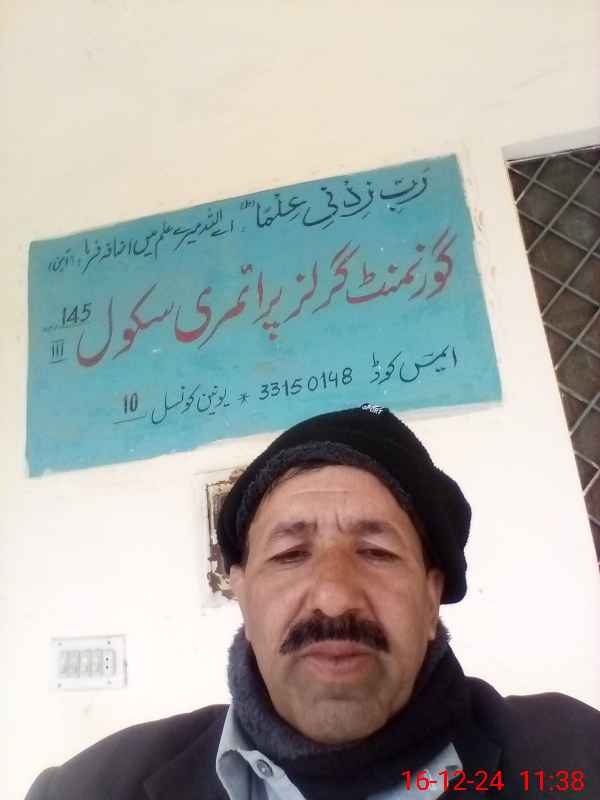 رَبِّ زِدْنِی عِلْمًا (طہ) اے اللہ میرے علم میں اضافہ فرما۔ (آمین)
گورنمنٹ گرلز پرائمری سکول 145/III
ایمس کوڈ 33150148 * یونین کونسل 10
16-12-24 11:38